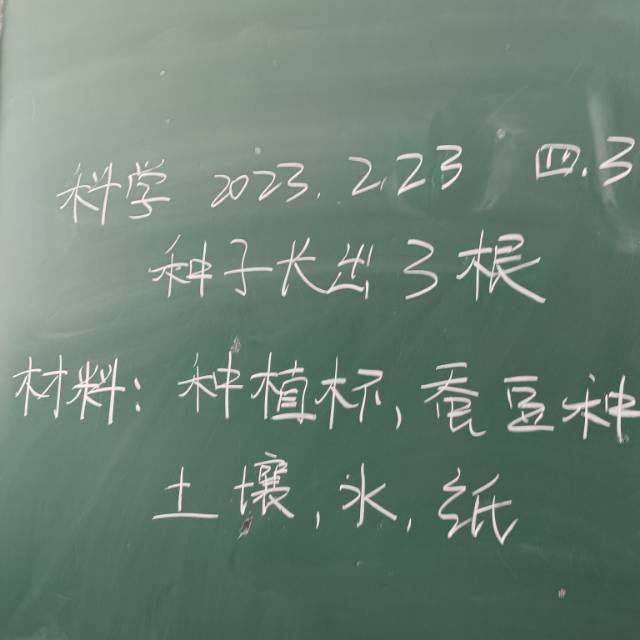 科学 2023. 2.23 四.3
种子长出了根
材料:种植杯,蚕豆种
土壤,水,纸